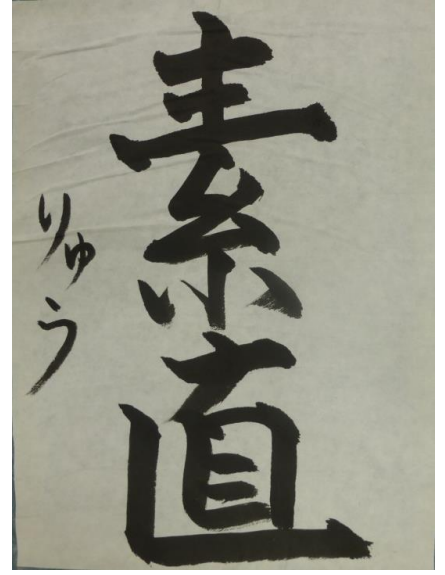 素直
りゅう